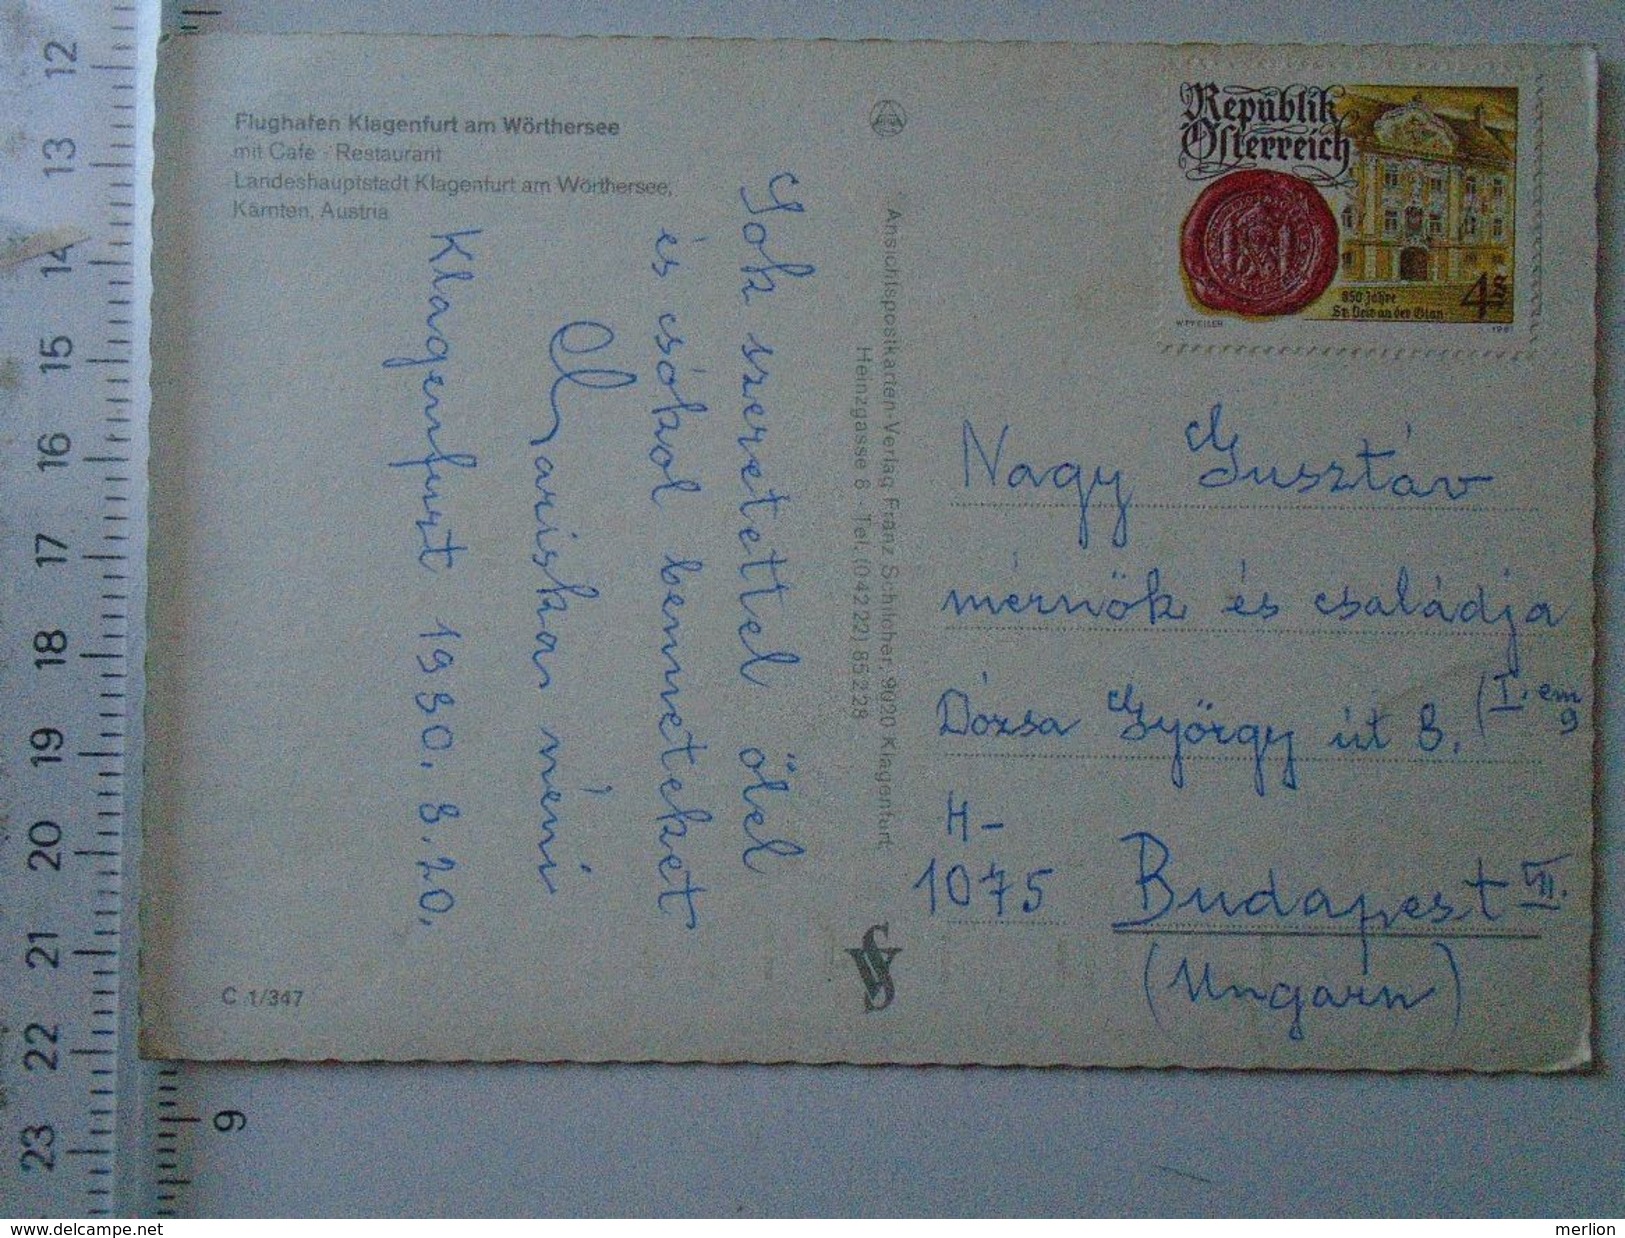 Flughafen Klagenfurt am Wörthersee
mit Cafe - Restaurant
Landeshauptstadt Klagenfurt am Wörthersee,
Kärnten, Austria
Sok szeretettel ölel
és csókol benneteket
Mariska néni
Klagenfurt 1980. 8. 20.
C 1/347
Ansichtspostkarten-Verlag Franz Schilcher, 9020 Klagenfurt
Heinzgasse 8 - Tel. (04222) 85228
Republik
Österreich
850 Jahre
St. Veit an der Glan
4 S
W. PFEILER
1981
Nagy Gusztáv
mérnök és családja
Dózsa György út 8. (I. em
9
H-
1075 Budapest VII.
(Ungarn)
12
13
14
15
16
17
18
19
20
21
22
23
9
delcampe.net
merlion